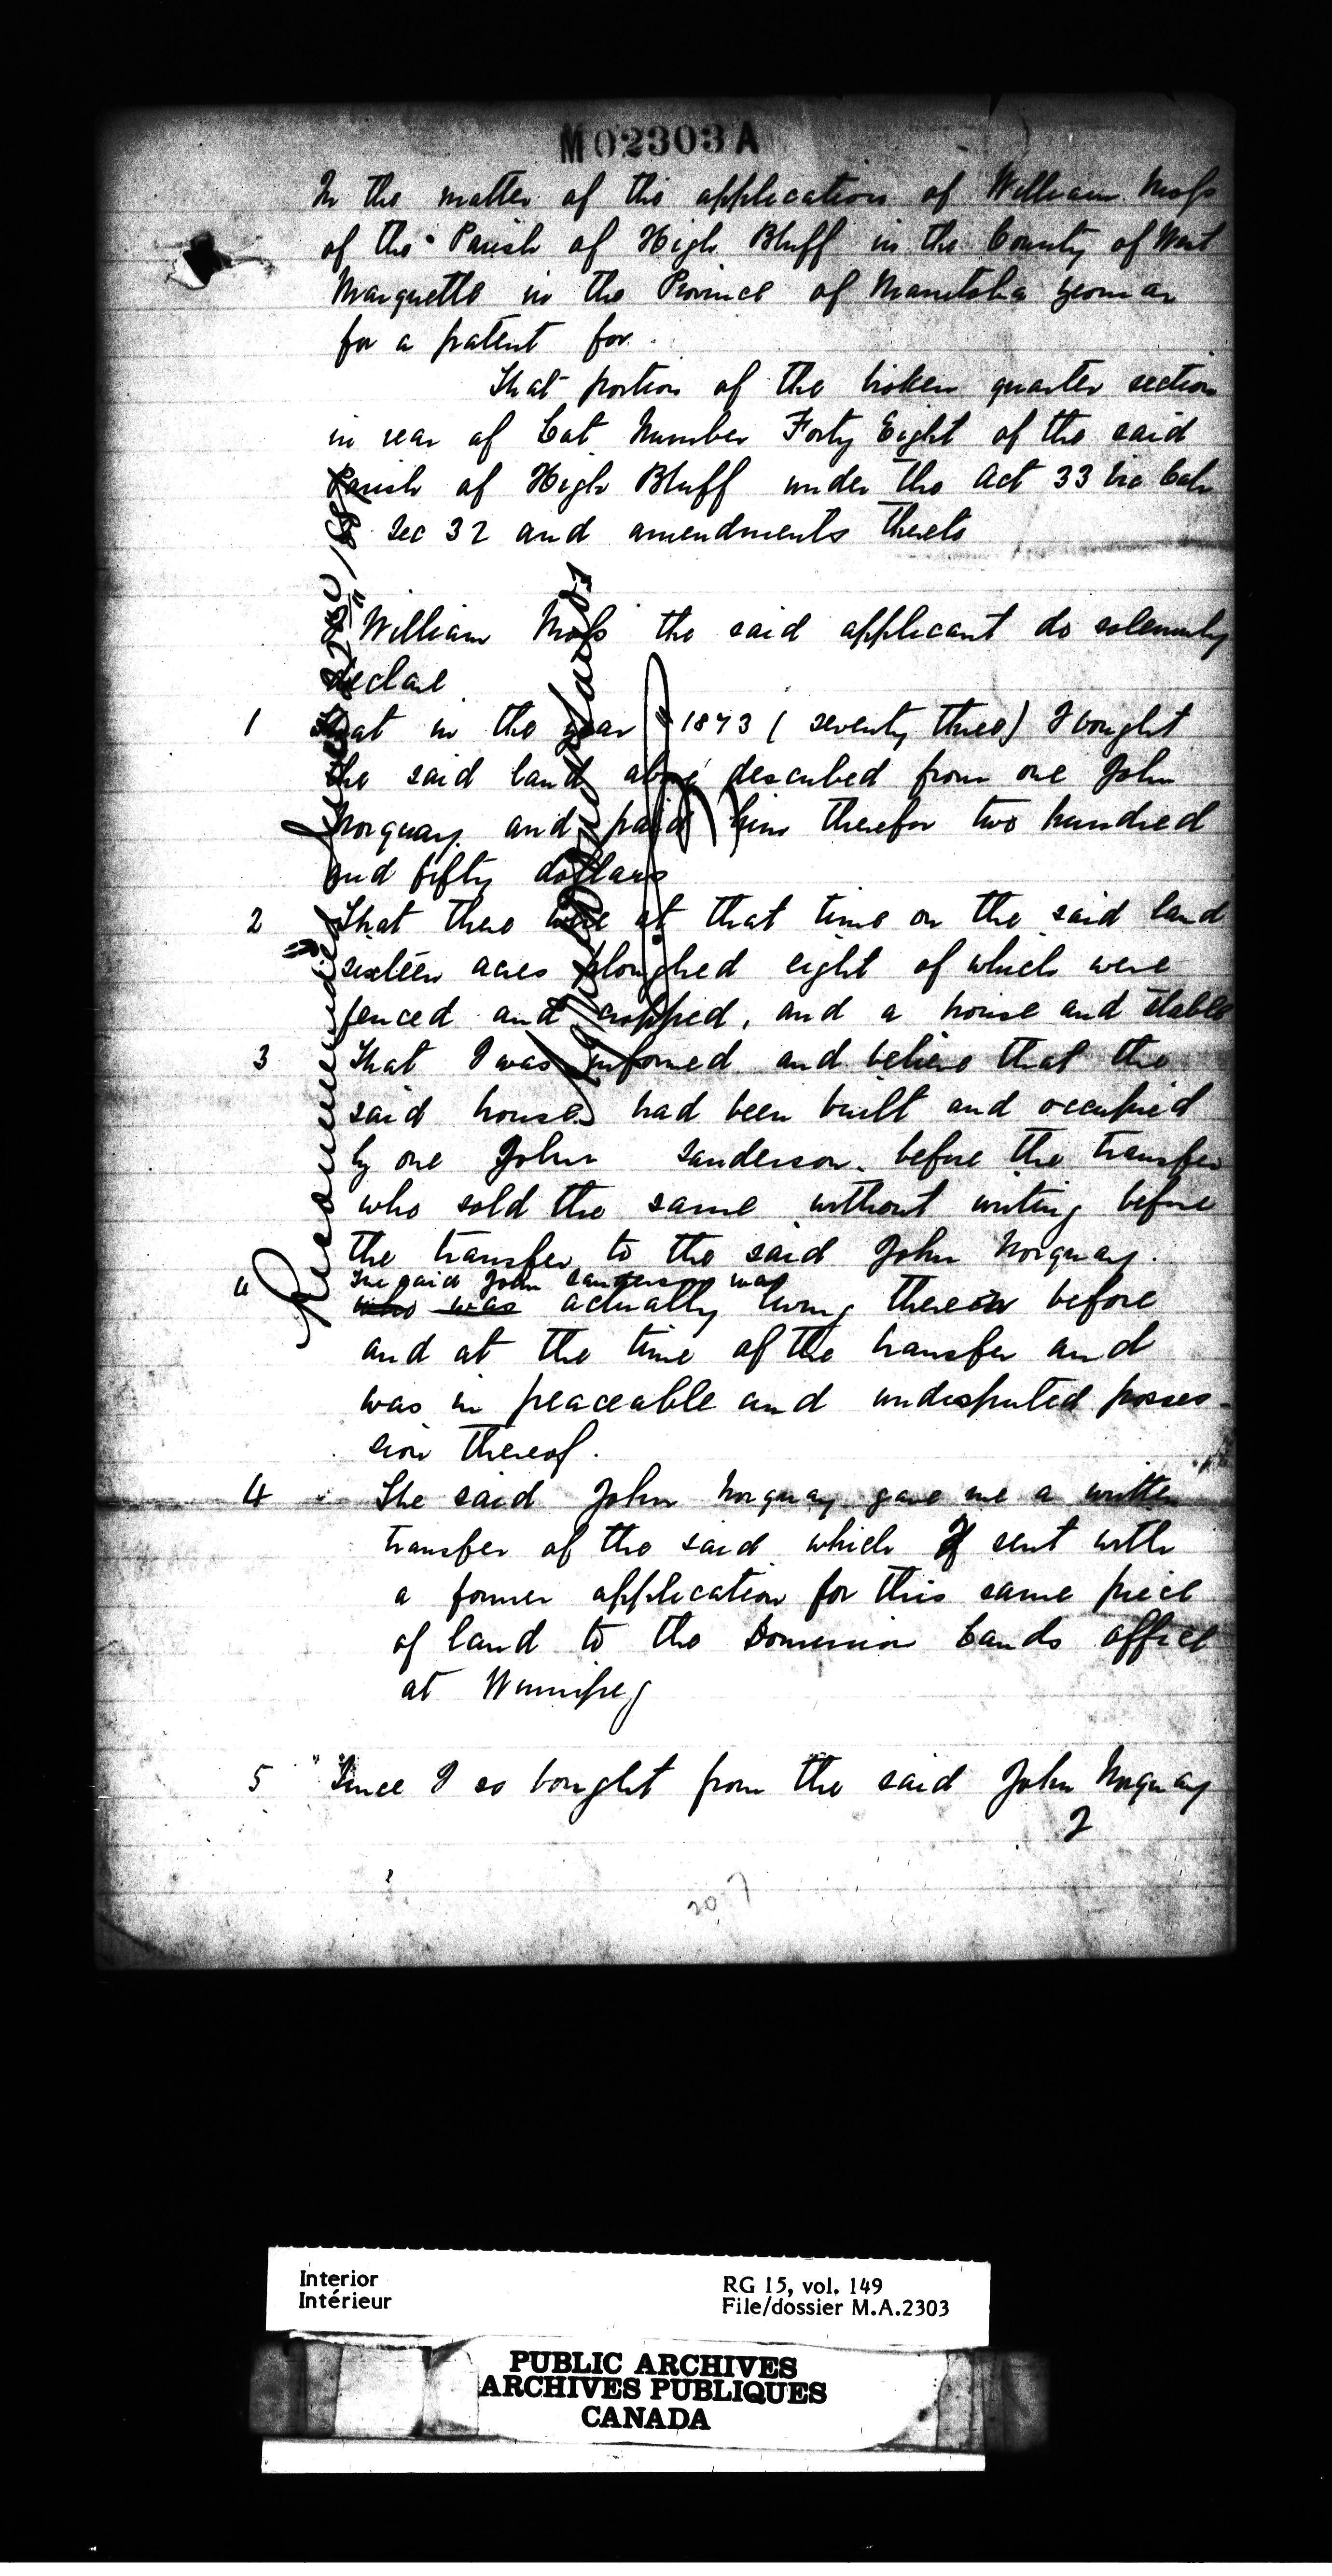 M 02303 A
In the matter of the application of William Moss
of the Parish of High Bluff in the County of West
Marquette in the Province of Manitoba yeoman
for a patent for
That portion of the broken quarter section
in rear of Lot Number Forty Eight of the said
Parish of High Bluff under the Act 33 Vic Cap
Sec 32 and amendments thereto
William Moss the said applicant do solemnly
declare
1 That in the year 1873 (seventy three) I bought
the said land above described from one John
Norquay and paid him therefor two hundred
and fifty dollars
2 That there were at that time on the said land
sixteen acres ploughed eight of which were
fenced and cropped, and a house and stable
3 That I was informed and believe that the
said house had been built and occupied
by one John Sanderson before the transfer
who sold the same without writing before
the transfer to the said John Norquay.
The said John Sanderson was
who was actually living thereon before
and at the time of the transfer and
was in peaceable and undisputed posses-
sion thereof.
4 The said John Norquay gave me a written
transfer of the said which I sent with
a former application for this same piece
of land to the Dominion Lands office
at Winnipeg
5 Since I so bought from the said John Norquay
2
207
Recommended June 22nd 188
Interior
Intérieur
RG 15, vol. 149
File/dossier M.A.2303
PUBLIC ARCHIVES
ARCHIVES PUBLIQUES
CANADA